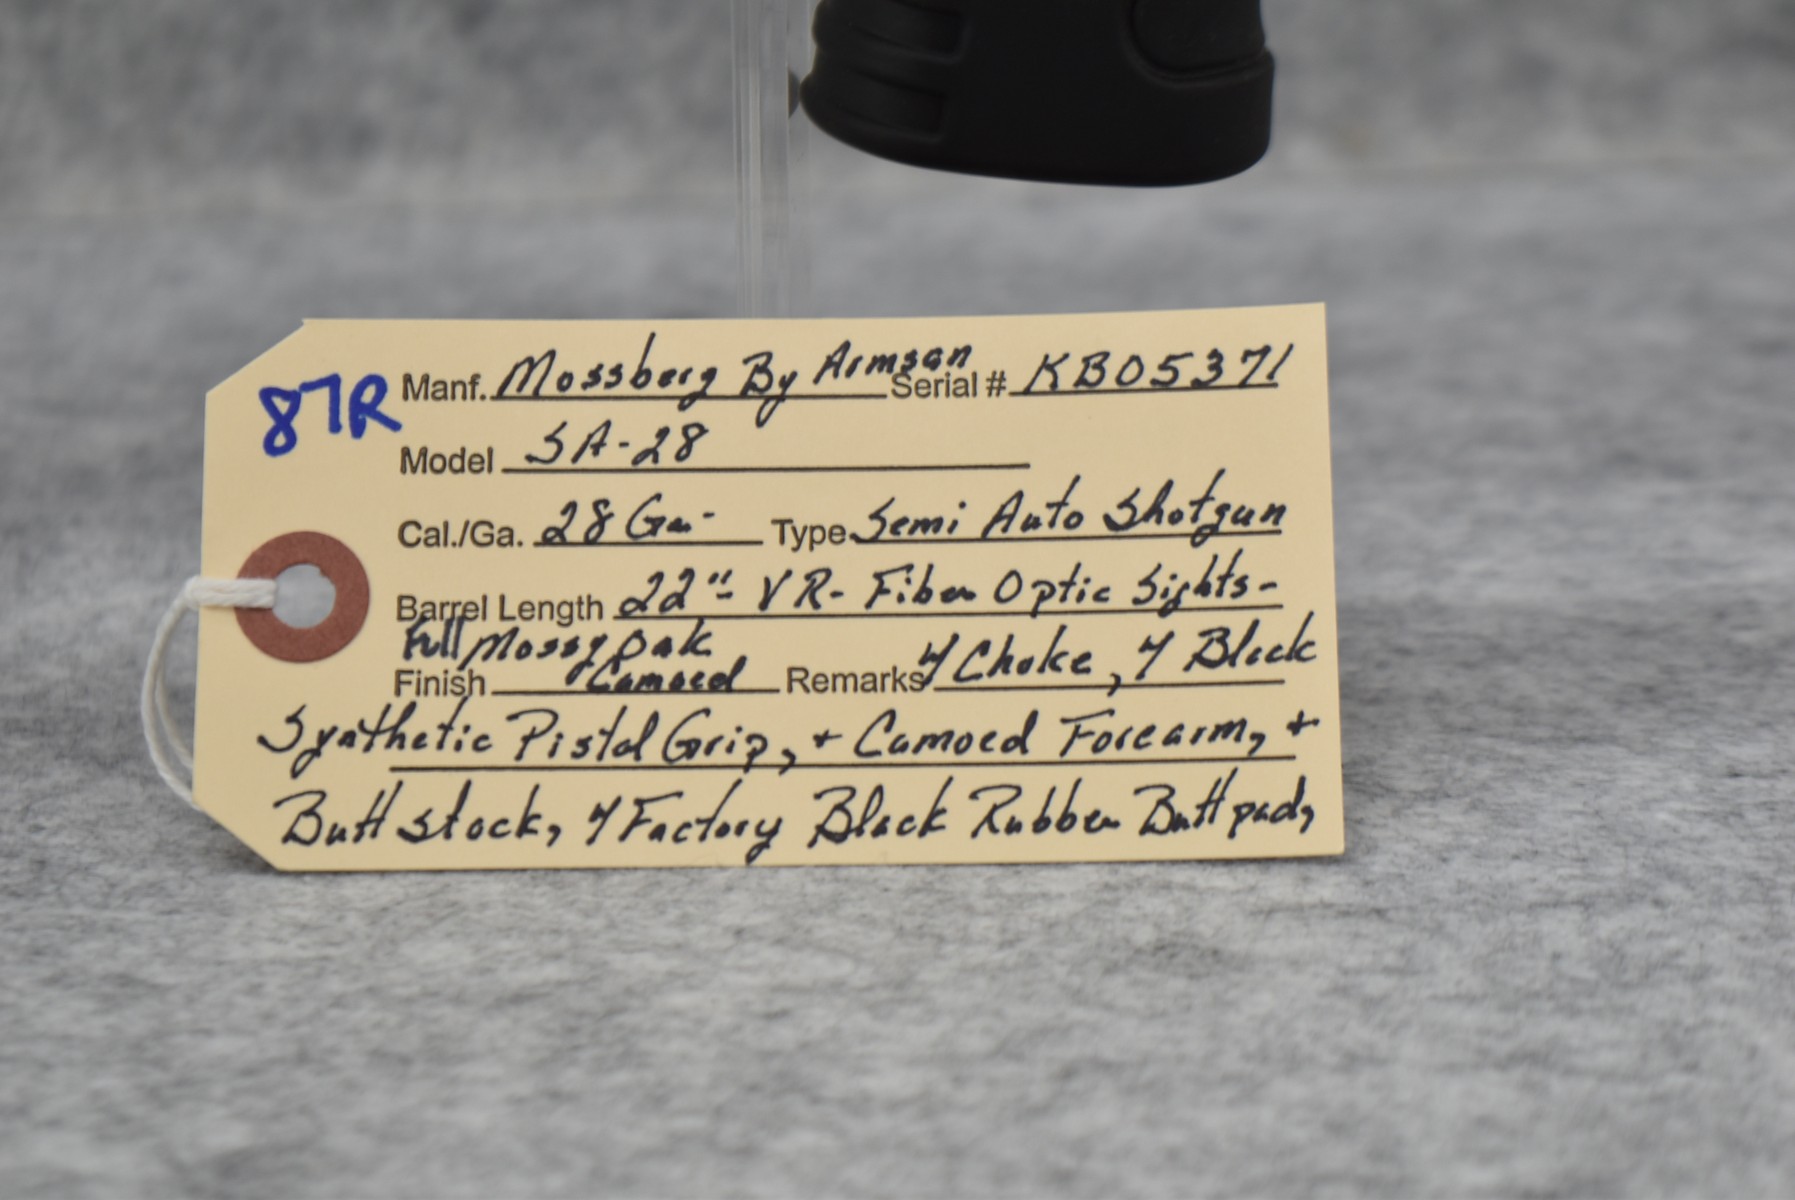 87R
Manf. Mossberg By Armsan Serial # KB05371
Model SA-28
Cal./Ga. 28 Ga- Type Semi Auto Shotgun
Barrel Length 22"- VR- Fiber Optic Sights-
Full Mossy Oak
Finish Camoed Remarks y Choke, y Black
Synthetic Pistol Grip, + Camoed Forearm, +
Butt stock, y Factory Black Rubber Butt pad,